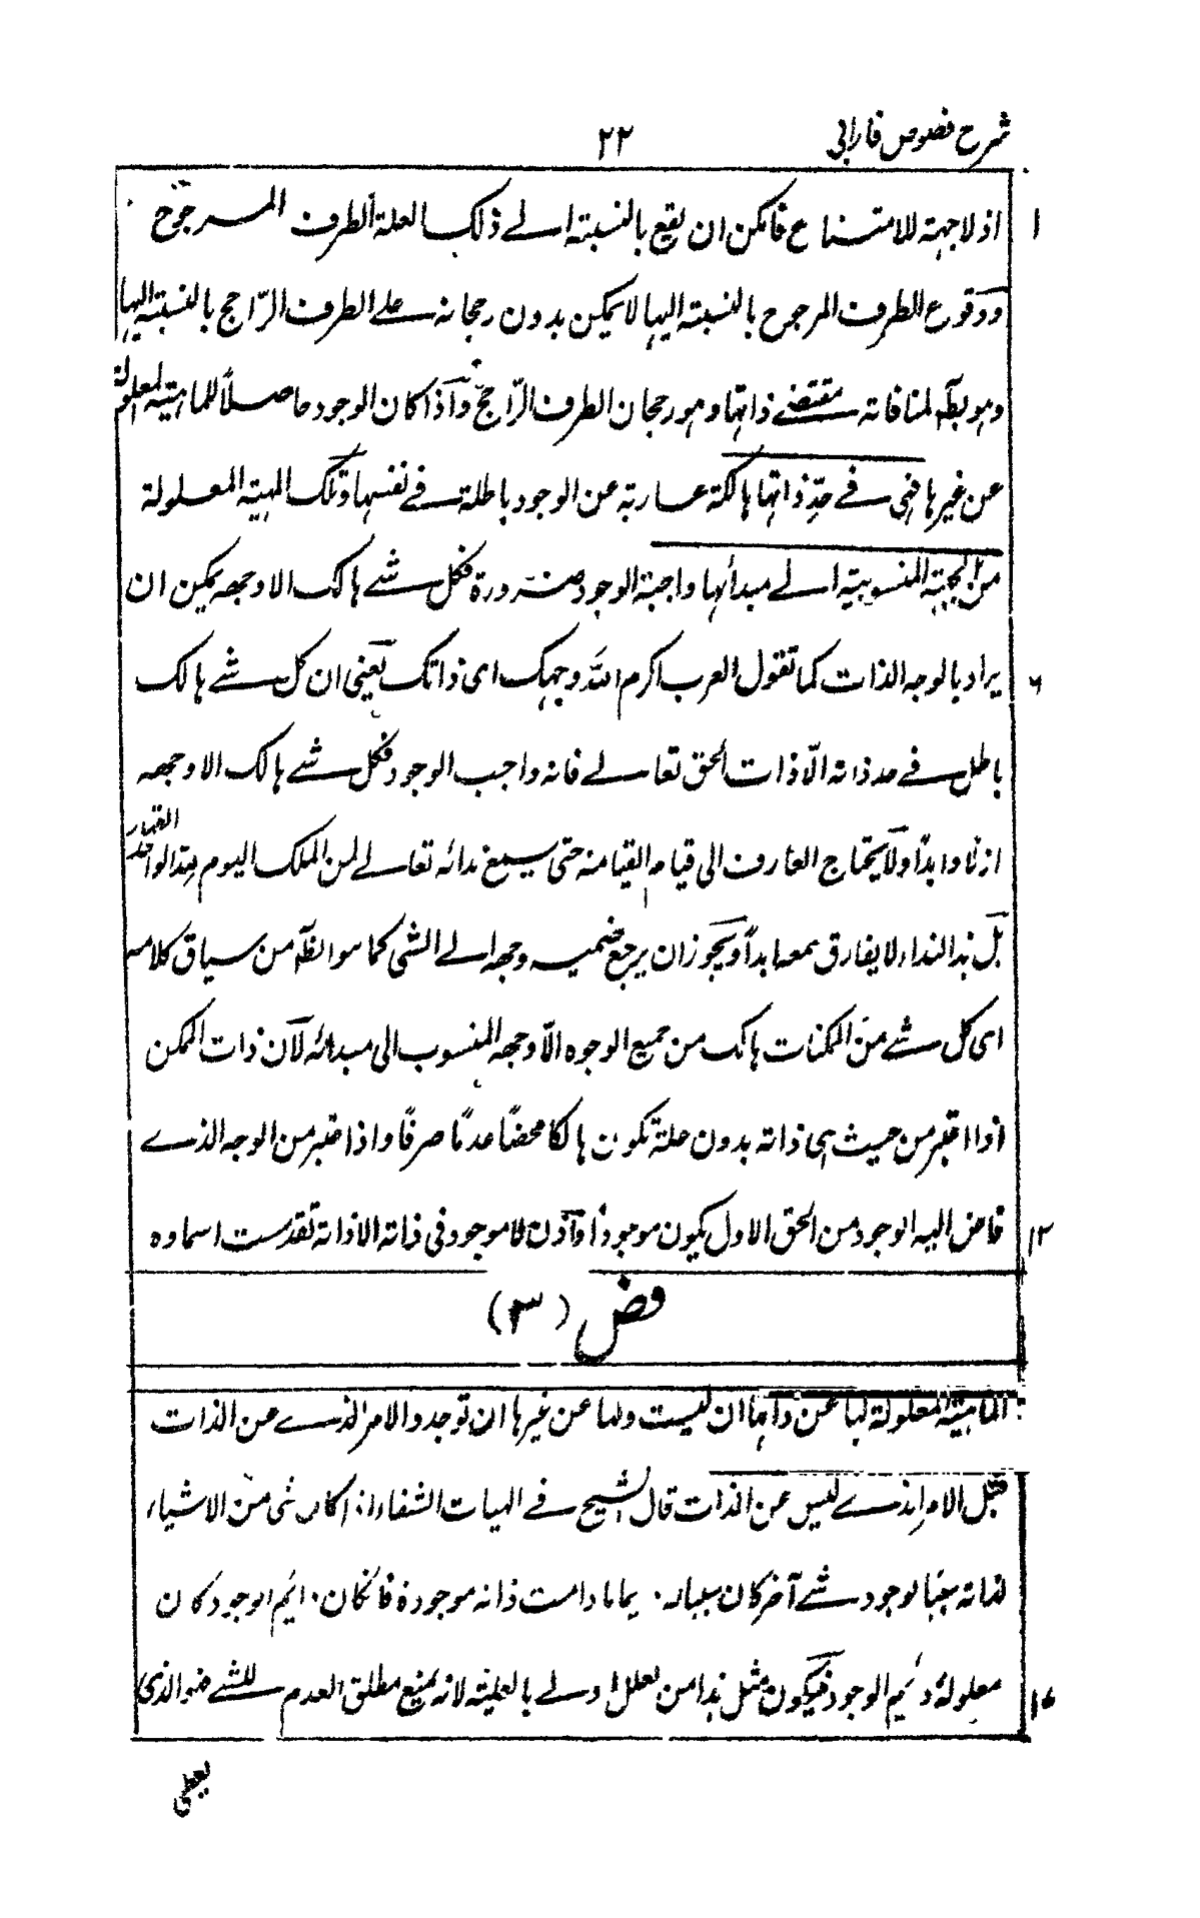 شرح فصوص فارابی
۲۲
۱
اذ لا جهة للامتناع فامكن ان يقع بالنسبة الے ذلك العلة الطرف المرجوح
ووقوع الطرف المرجوح بالنسبة اليها لا يمكن بدون رجحانه علے الطرف الرّاجح بالنسبة اليها
وهو بطؔ لمنافاته مقتضے ذاتها وهو رجحان الطرف الرّاجح واذا كان الوجود حاصلاً للماهية المعلولة
عن غيرها فهی فے حدّ ذاتها هالكة عارية عن الوجود باطلة فے نفسها وتلك المهية المعلولة
من الجهة المنسوبية الے مبدأها واجبة الوجود ضرورة فكل شے هالك الا وجهه يمكن ان
۶
يراد بالوجه الذات كما تقول العرب اكرم الله وجهك ای ذاتك يعنی ان كل شے هالك
باطل فے حد ذاته الّا ذات الحق تعالے فانه واجب الوجود فكل شے هالك الا وجهه
ازلا وابدًا ولا يحتاج العارف الی قيام القيامة حتی يسمع ندائه تعالے لمن الملك اليوم لله الواحد القهار
بل هذا النداء لا يفارق سمعه ابداً ويجوز ان يرجع ضمير وجهه الے الشی كما هو الظؔ من سياق كلامه
ای كل شے من الممكنات هالك من جميع الوجوه الّا وجهه المنسوب الی مبدائه لان ذات الممكن
اذا اعتبر من حيث هی ذاته بدون علة تكون هالكا محضًا عدمًا صرفًا واذا اعتبر من الوجه الذے
۱۲
فاض اليه الوجود من الحق الاول يكون موجوداً فاذن لا موجود فی ذاته الا ذاته تقدست اسماوه
فص (۳)
الماهية المعلولة لها عن ذاتها ان ليست ولها عن غيرها ان توجد والامر الذے عن الذات
قبل الامر الذے ليس عن الذات قال الشيخ فے الهيات الشفاء اذا كان شی من الاشياء
لذاته سببًا لوجود شے آخر كان سببا له دايما مادامت ذاته موجودة فانكان دايم الوجود كان
۱۶
معلوله دايم الوجود فيكون مثل هذا من العلل اولے بالعلية لانه يمنع مطلق العدم للشے فهو الذی
يعطی